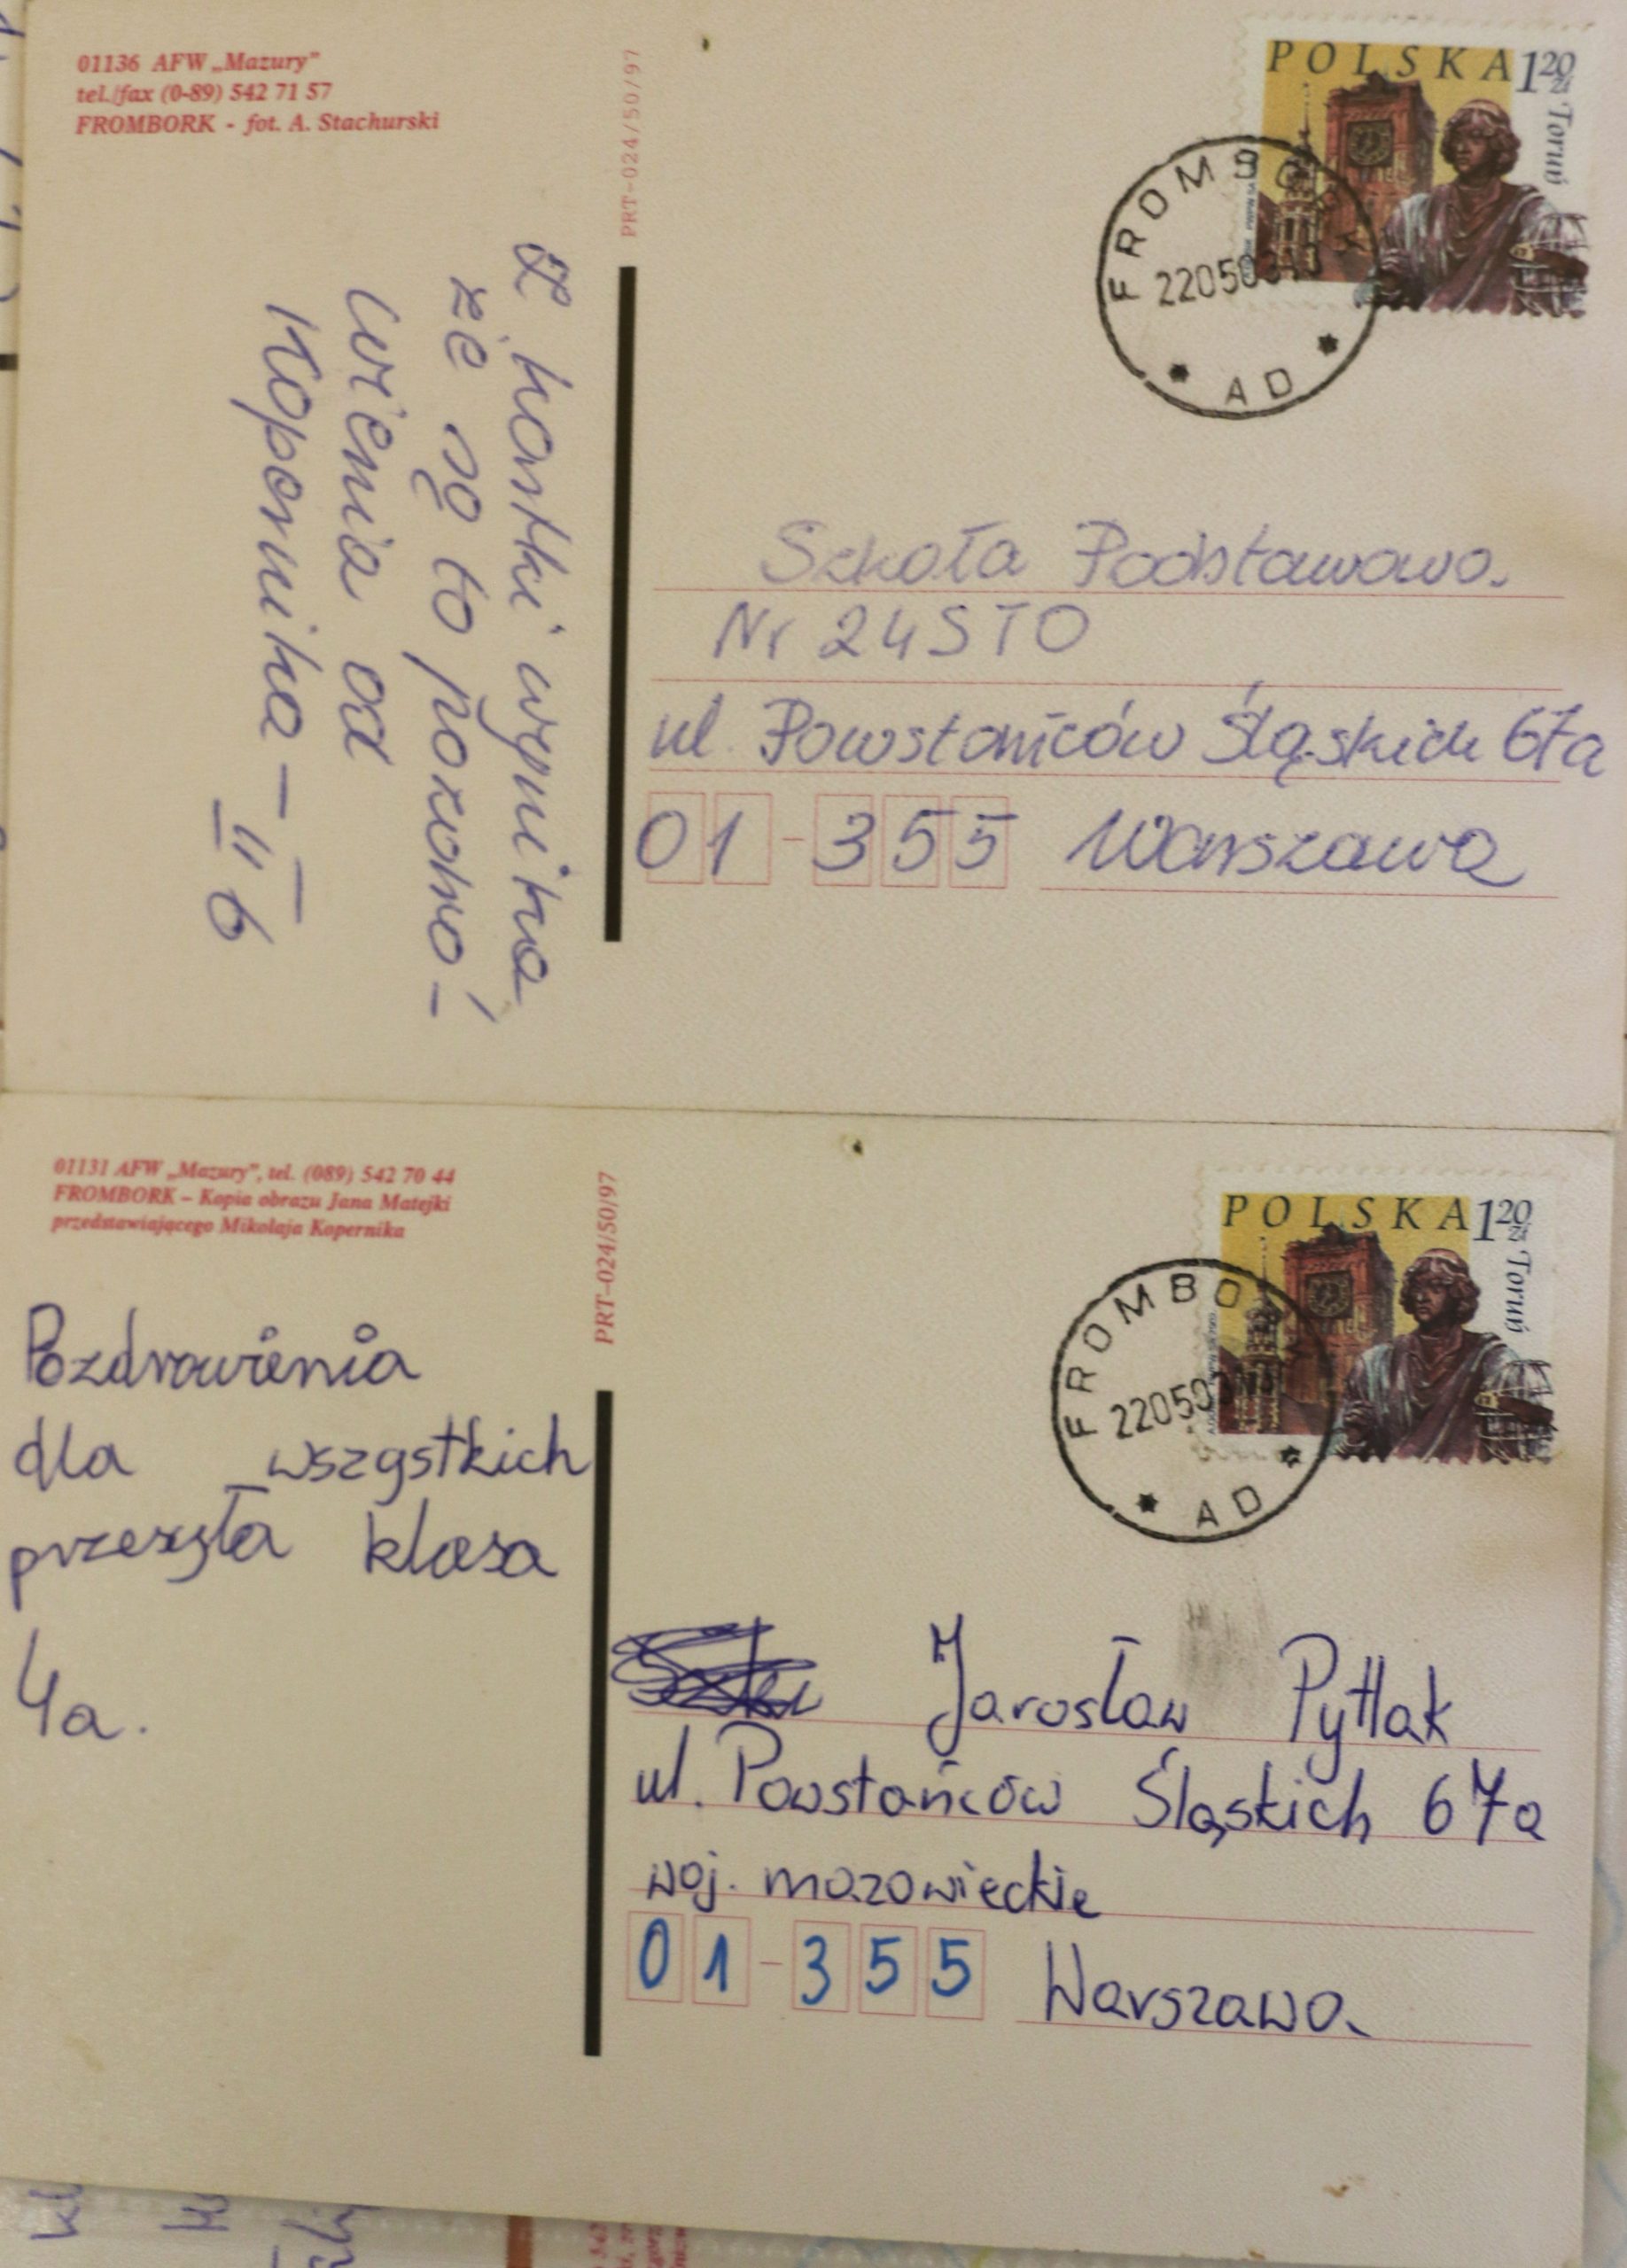 01136 AFW „Mazury”
tel./fax (0-89) 542 71 57
FROMBORK - fot. A. Stachurski
PRT-024/50/97
POLSKA 1 20 zł
Toruń
FROMBORK
220503
AD
Z kartki wynika,
że są to pozdro-
wienia od
Kopernika –
II 6
Szkoła Podstawowa
Nr 24 STO
ul. Powstańców Śląskich 67a
01-355 Warszawa
01131 AFW „Mazury”, tel. (089) 542 70 44
FROMBORK – Kopia obrazu Jana Matejki
przedstawiającego Mikołaja Kopernika
PRT-024/50/97
POLSKA 1 20 zł
Toruń
FROMBO
220503
AD
Pozdrowienia
dla wszystkich
przesyła klasa
4a.
Jarosław Pytlak
ul. Powstańców Śląskich 67a
woj. mazowieckie
01-355 Warszawa